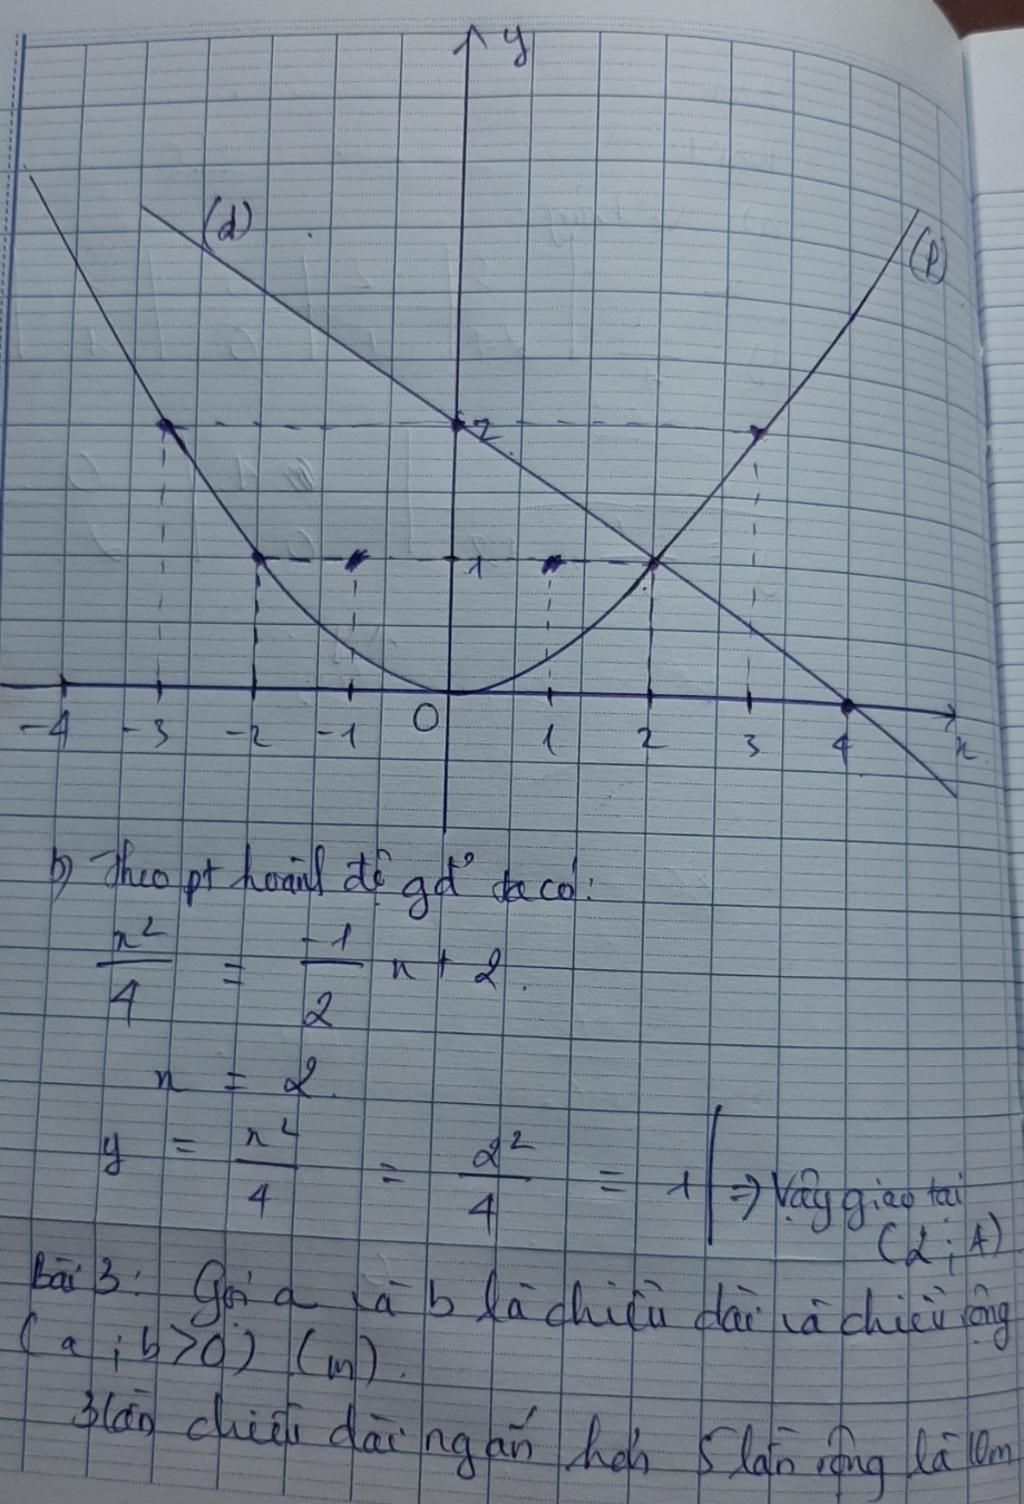 y
(d)
(P)
2
1
-4 -3 -2 -1 O 1 2 3 4 x
b) Theo pt hoành độ gđ ta có:
x²/4 = -1/2 x + 2.
x = 2.
y = x²/4 = 2²/4 = 1 | => Vậy giao tại
(2; 1)
Bài 3: Gọi a và b là chiều dài và chiều rộng
(a; b>0) (m).
3 lần chiều dài ngắn hơn 5 lần rộng là 10m